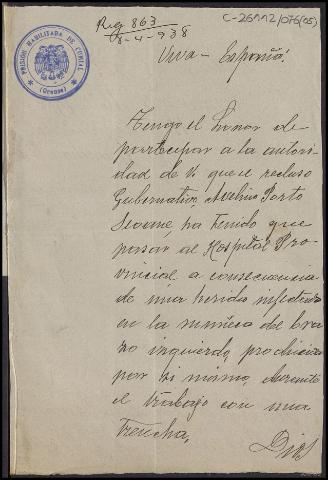 C-26112/076(05)
Reg 863
8-4-938
PRISIÓN HABILITADA DE
(Orense)
Viva - España!
Tengo el honor de
participar a la autori-
dad de V. que el recluso
Gubernativo, Avelino Porto
Seoane, ha tenido que
pasar al Hospital Pro-
vincial a consecuencia
de una herida infectada
en la muñeca del bra-
zo izquierdo, producida
por si mismo, durante
el trabajo con una
trencha,
Dios